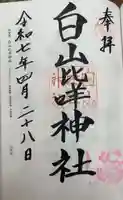 奉拝
白山比咩神社
令和七年四月二十八日